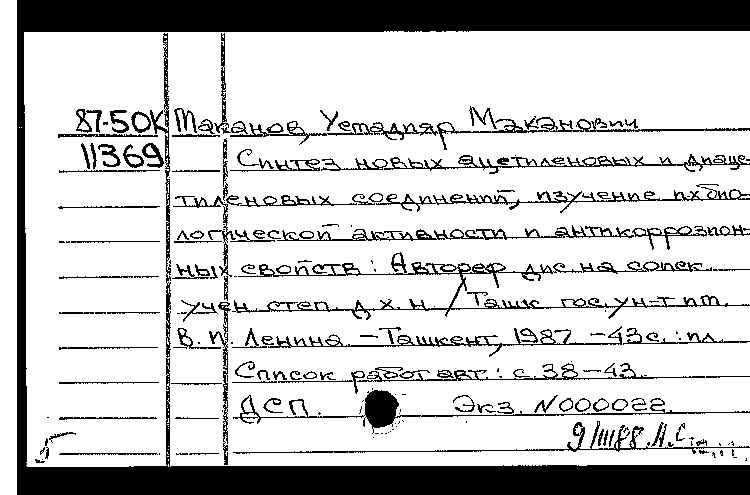 87-50К Маканов, Уетадияр Маканович
11369 Синтез новых ацетиленовых и диаце-
тиленовых соединений, изучение их био-
логической активности и антикоррозион-
ных свойств : Автореф дис. на соиск.
учен степ. д х. н. / Ташк гос. ун-т им.
В. И. Ленина – Ташкент, 1987 – 43 с. : ил.
Список работ авт. : с. 38 – 43.
ДСП. Экз. N000022.
9/III88.